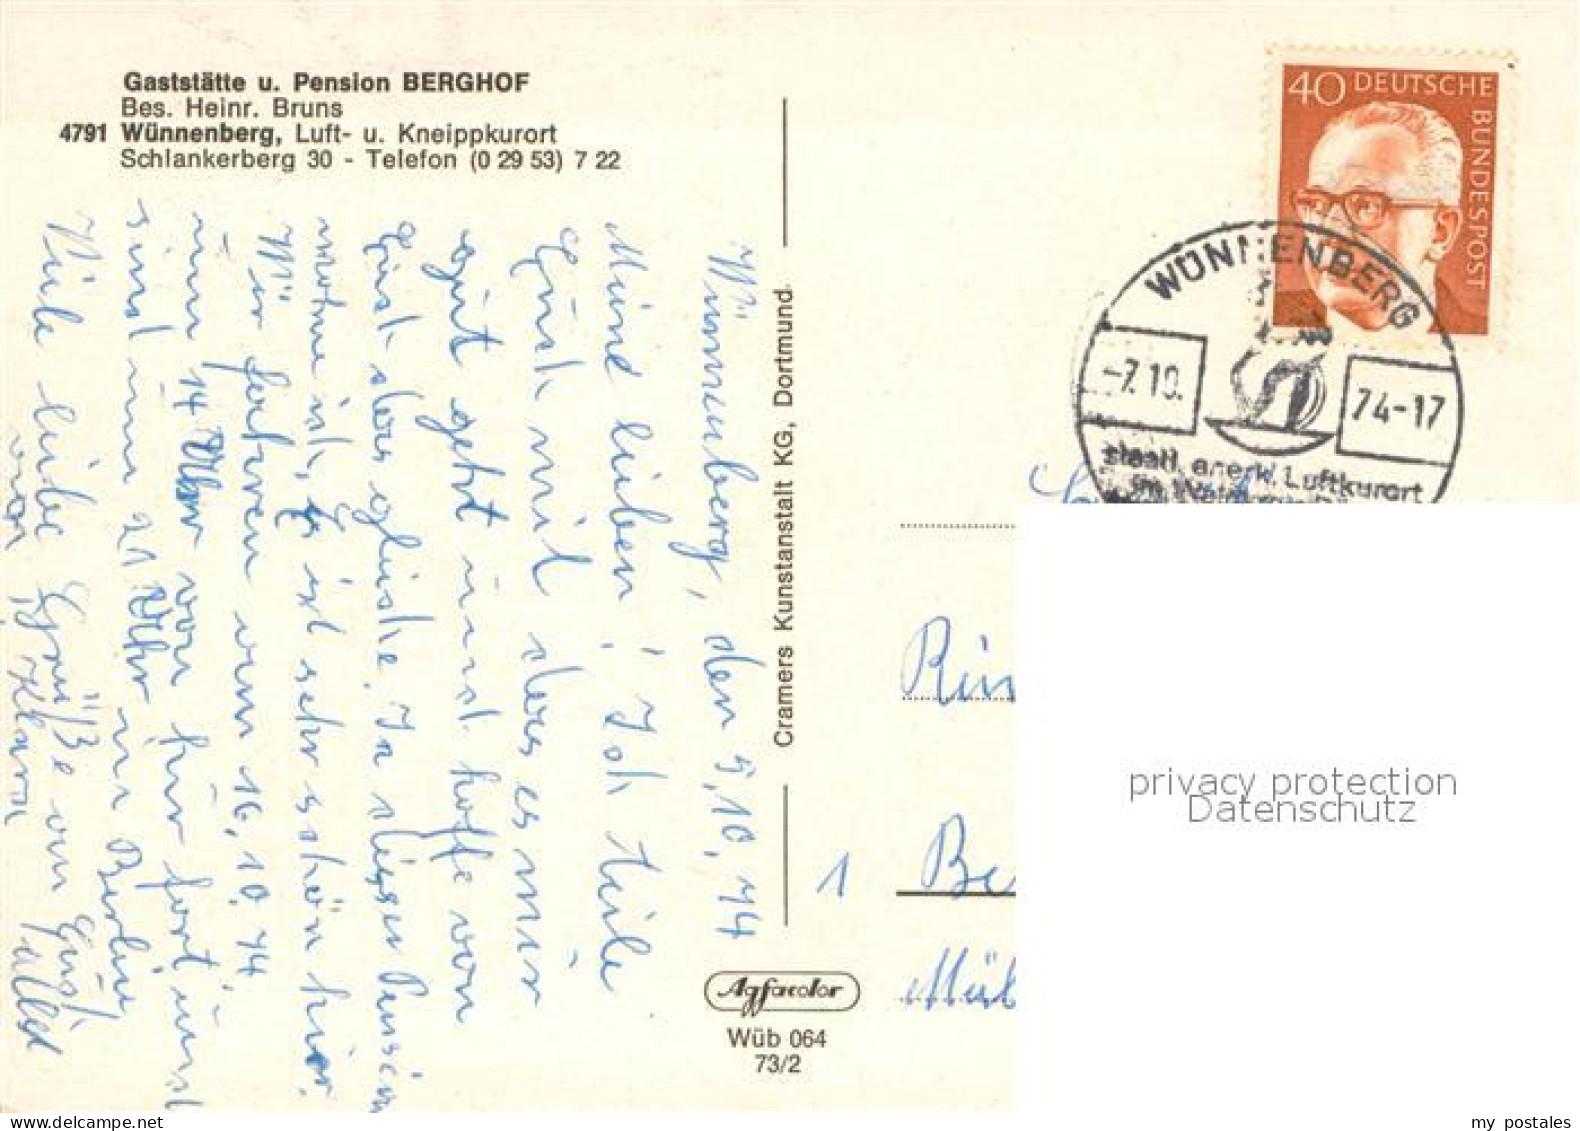 Gaststätte u. Pension BERGHOF
Bes. Heinr. Bruns
4791 Wünnenberg, Luft- u. Kneippkurort
Schlankerberg 30 - Telefon (0 29 53) 7 22
Wünnenberg, den 5.10.74
Meine lieben! Ich teile
Euch mit das es mir
gut geht und hoffe von
Euch das gleiche. In dieser Pension
wohne ich, Es ist sehr schön hier.
Wir fahren am 16.10.74
um 14 Uhr von hier fort und
sind um 21 Uhr in Berlin
Viele liebe Grüße an Euch
von Klara
Cramers Kunstanstalt KG, Dortmund
Agfacolor
Wüb 064
73/2
40 DEUTSCHE
BUNDESPOST
WÜNNENBERG
-7.10.
74-17
staatl. anerk. Luftkurort
1
Be
Müb
privacy protection
Datenschutz
www.delcampe.net
my postales